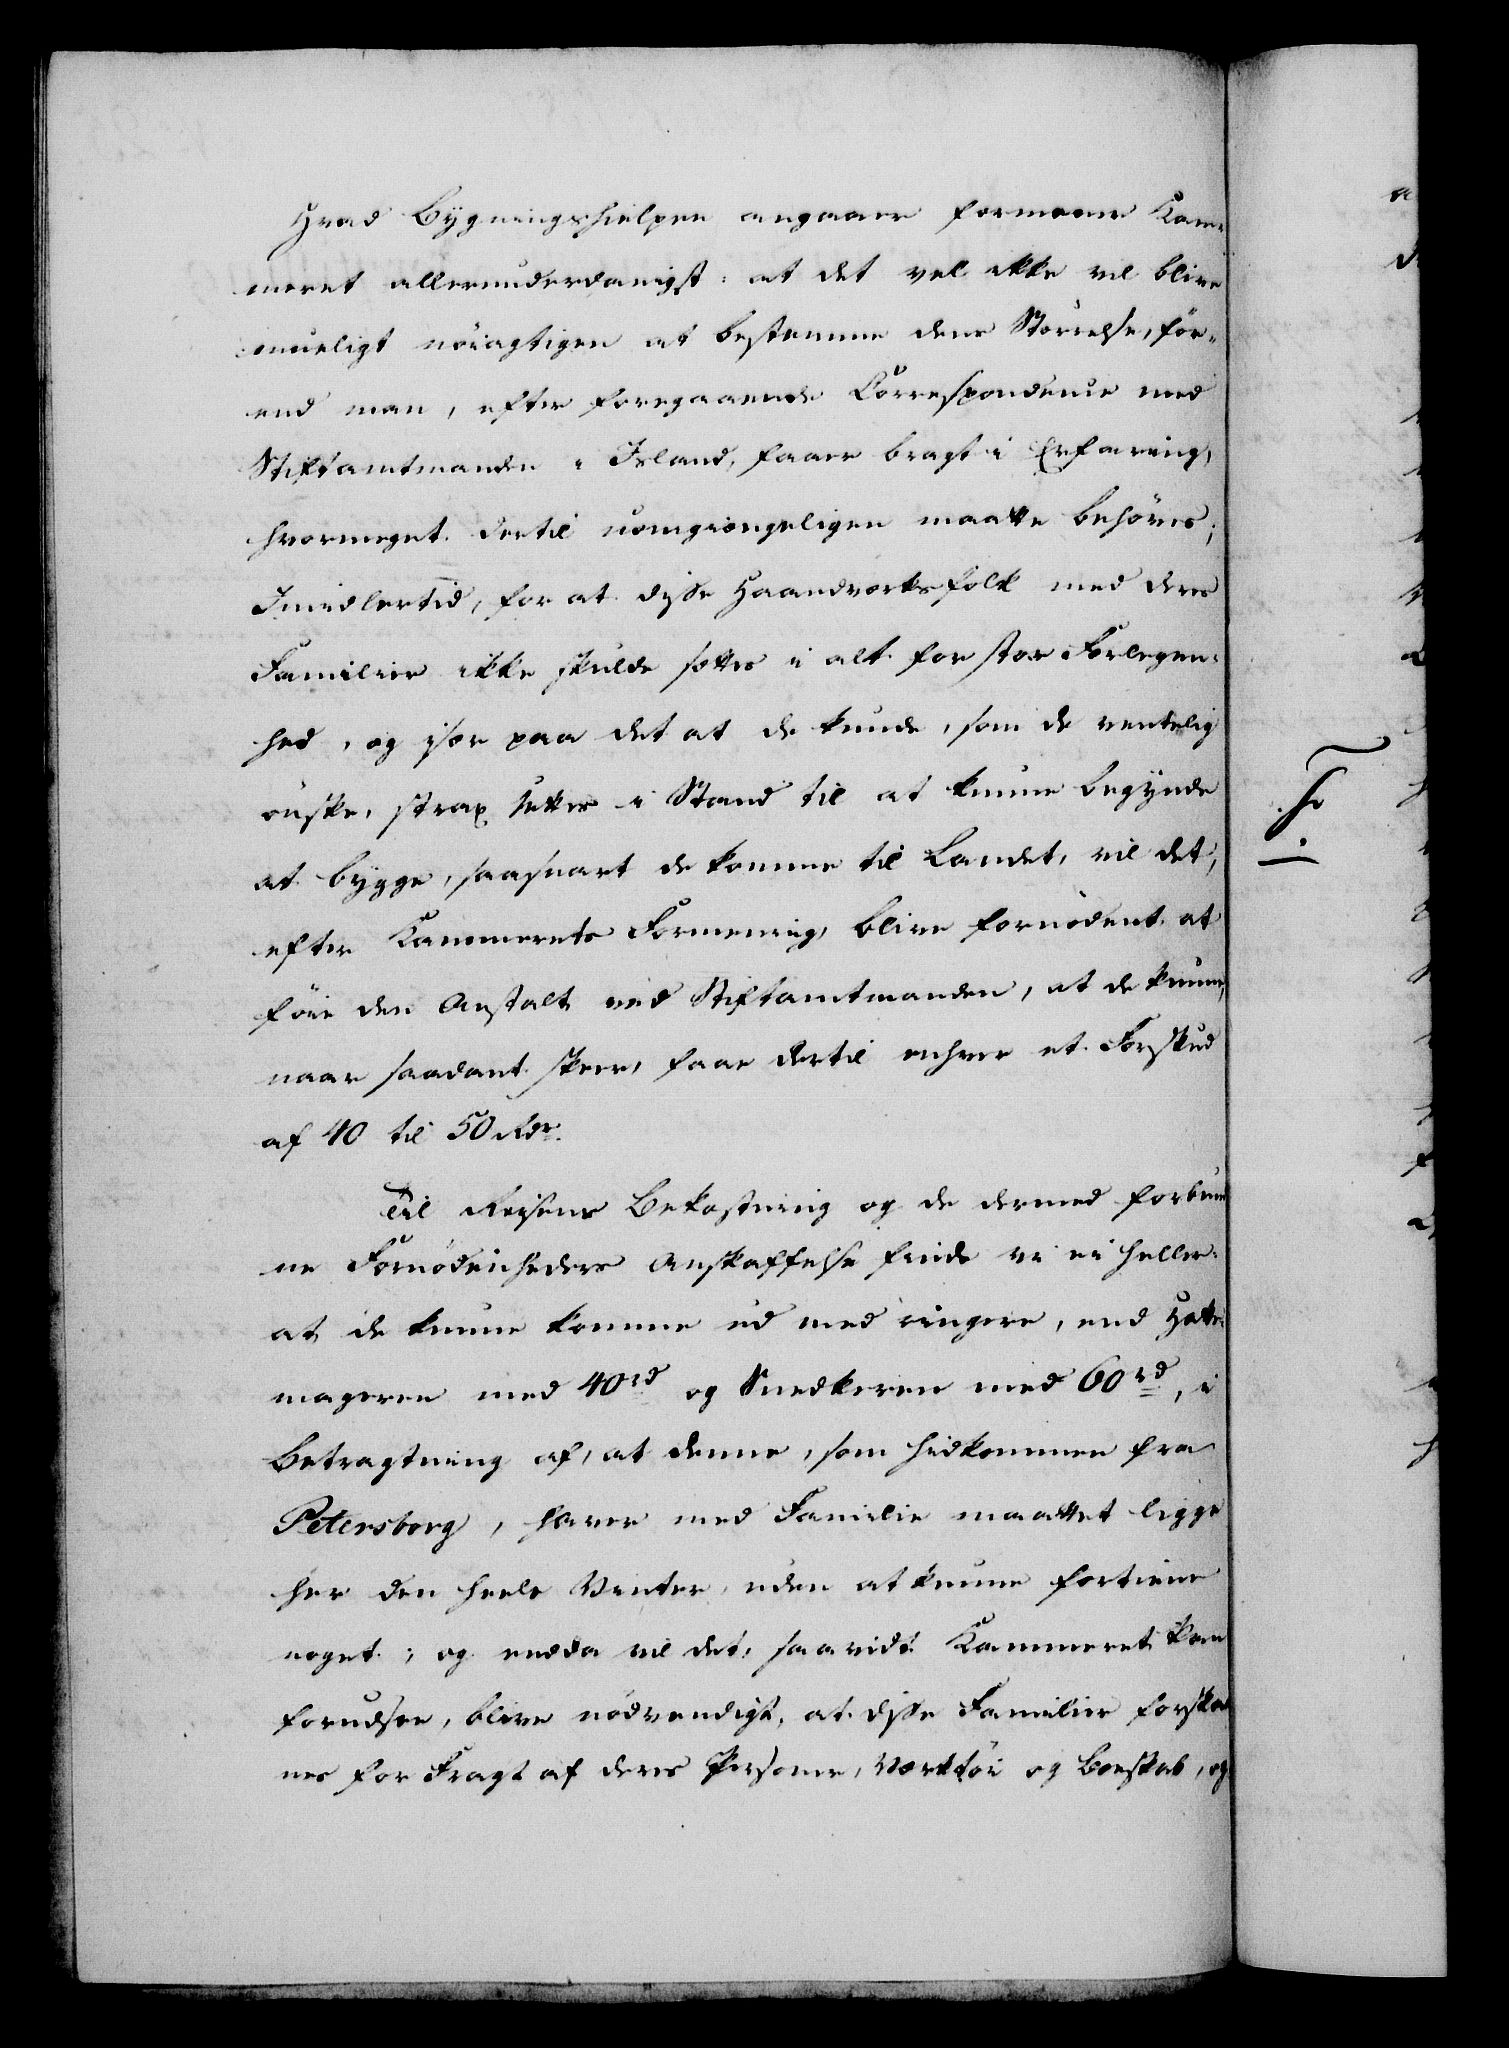 Hvad Bygningshielpen angaaer formeener Kam-
meret allerunderdanigst: at det vel ikke vil blive
mueligt nöiagtigen at bestemme dens Störrelse, för-
end man, efter foregaaende Correspondence med
Stiftamtmanden i Island, faaer bragt i Erfaring,
hvormeget dertil uomgiængeligen maatte behöves;
Imidlertid, for at disse Haandværksfolk med deres
Familier ikke skulde sættes i alt for stor Forlegen-
hed, og især paa det at de kunde, som de ventelig
önske, strax sættes i Stand til at kunne begynde
at bygge, saasnart de komme til Landet, vil det,
efter Kammerets Formening, blive fornödent at
föie den Anstalt ved Stiftamtmanden, at de kunne,
naar saadant skeer, faae dertil enhver et Forskud
af 40 til 50 Rdr.
Til Reisens Bekostning og de dermed forbun
ne Fornödenheders Anskaffelse finde vi ei heller
at de kunne komme ud med ringere, end Hatte-
mageren med 40 rd og Snedkeren med 60 rd, i
Betragtning af, at denne, som hidkommen fra
Petersborg, haver med Familie maattet ligge
her den heele Vinter, uden at kunne fortiene
noget; og endda vil det, saavidt Kammeret kan
forudsee, blive nödvendigt, at disse Familier forskaa
nes for Fragt af deres Personer, Værktöi og Boeskab, og